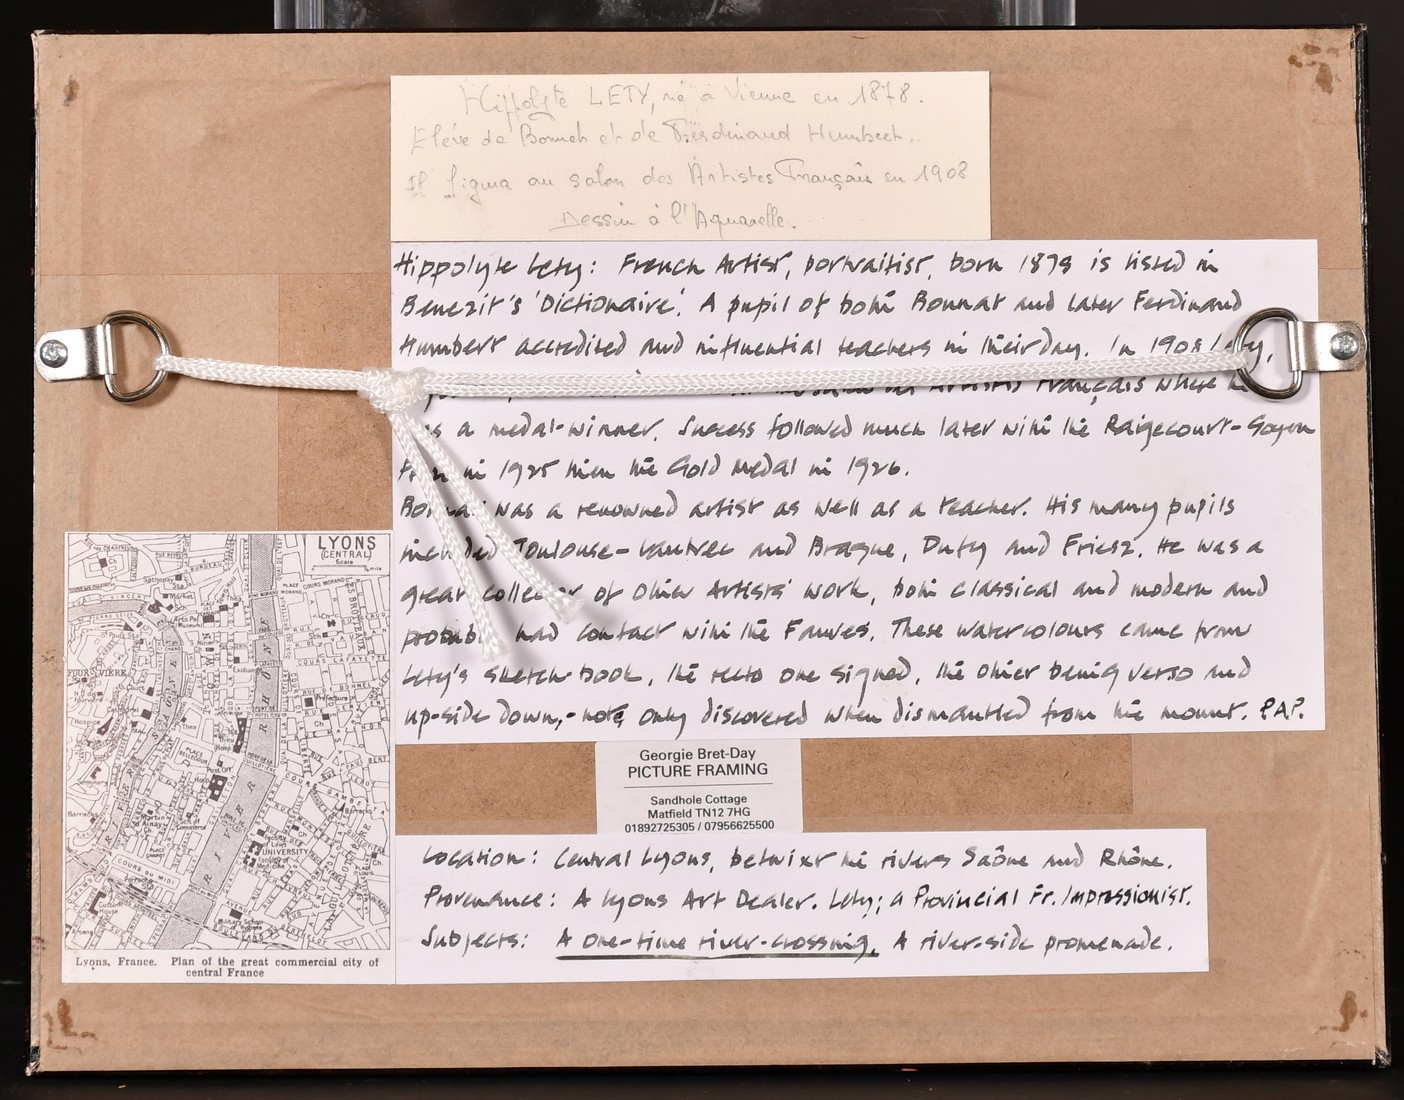 Hippolyte LETY, né à Vienne en 1878.
Elève de Bonnet et de Ferdinand Humbert..
Il figura au salon des Artistes Français en 1908
Dessin à l'Aquarelle.
Hippolyte Lety: French Artist, portraitist, born 1878 is listed in
Benezit's 'Dictionaire'. A pupil of both Bonnat and later Ferdinand
Humbert accredited and influential teachers in their day. In 1908 Lety,
Artistes Français where he
was a medal-winner. Success followed much later with the Raigecourt-Goyon
in 1925 then the Gold medal in 1926.
Bonnat was a renowned artist as well as a teacher. His many pupils
included Toulouse-Lautrec and Braque, Dufy and Friesz. He was a
great collector of other Artists' work, both classical and modern and
probably had contact with the Fauves. These watercolours came from
Lety's sketch-book, the recto one signed, the other being verso and
up-side down,- note, only discovered when dismantled from the mount. P.A.P.
Georgie Bret-Day
PICTURE FRAMING
Sandhole Cottage
Matfield TN12 7HG
01892725305 / 07956625500
Location: Central Lyons, betwixt the rivers Saône and Rhône.
Provenance: A Lyons Art Dealer. Lety; a Provincial Fr. Impressionist.
Subjects: A one-time river-crossing. A river-side promenade.
LYONS
(CENTRAL)
Scale
RIVER RHÔNE
RIVER SAÔNE
FOURVIÈRE
UNIVERSITY
Lyons, France. Plan of the great commercial city of
central France